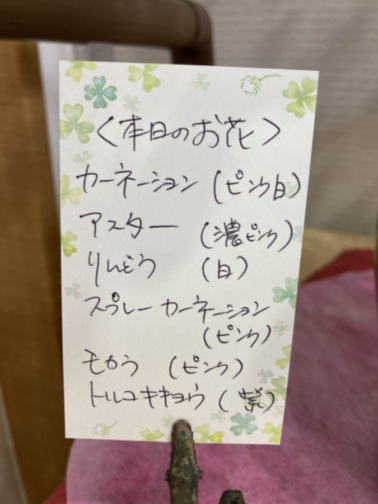 〈本日のお花〉
カーネーション(ピンク白)
アスター (濃ピンク)
りんどう (白)
スプレーカーネーション
(ピンク)
モカラ (ピンク)
トルコキキョウ(紫)